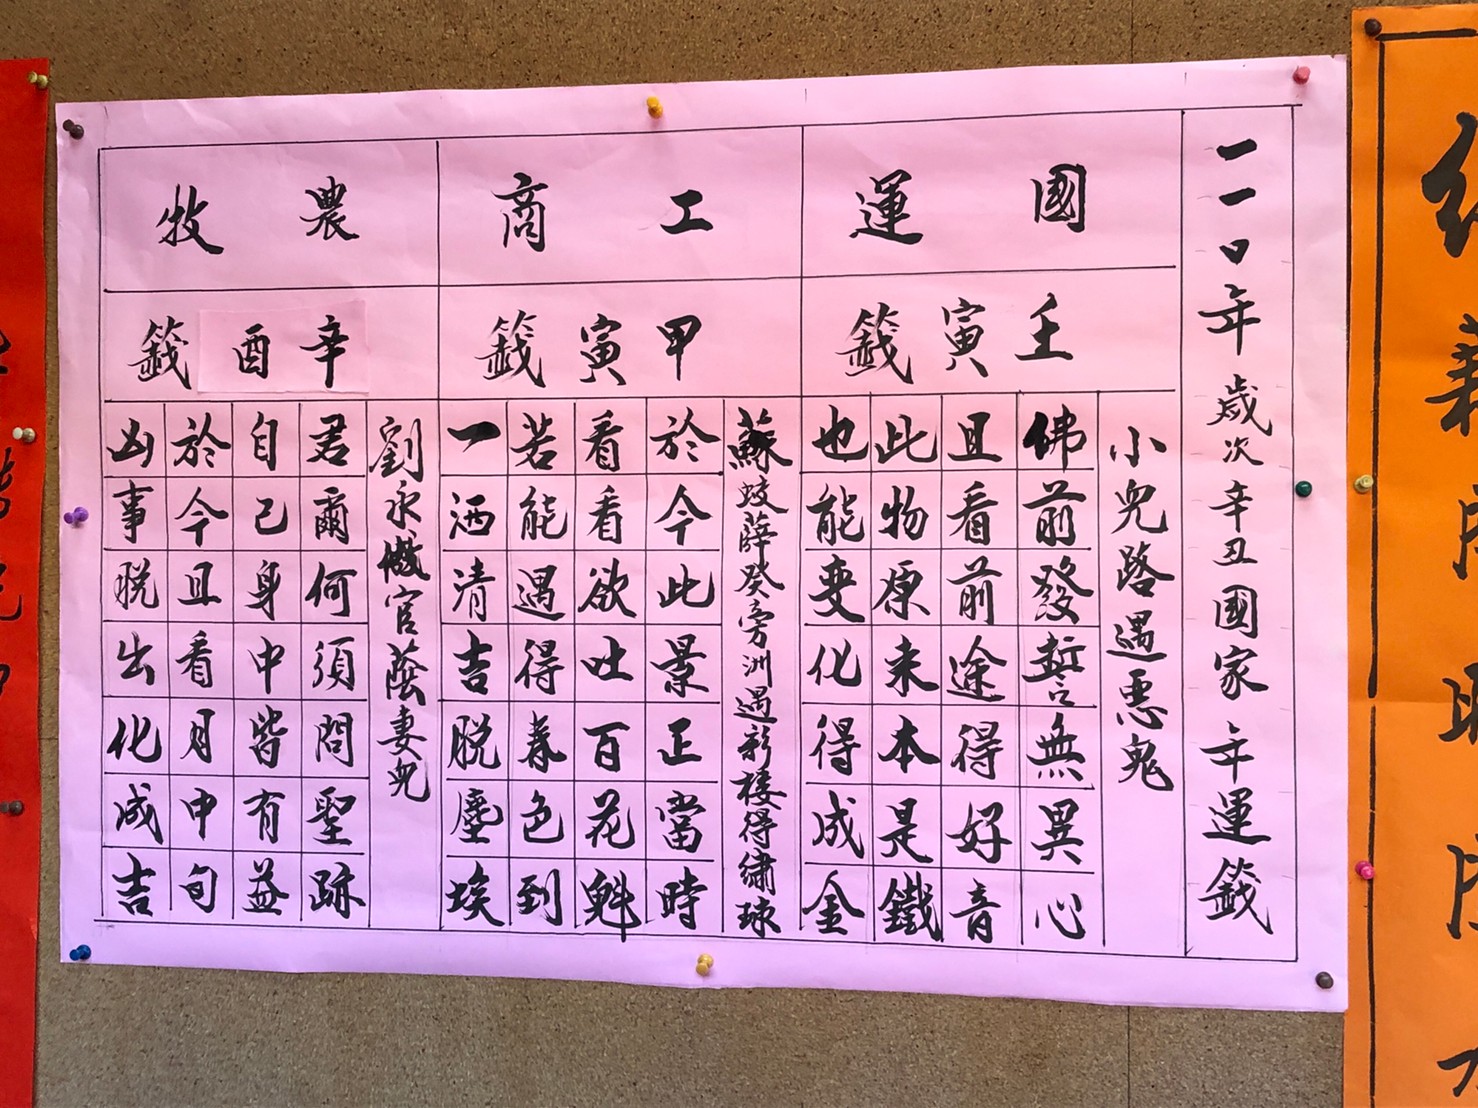 一一0年歲次辛丑國家年運籤
國運
壬寅籤
小兒路遇惡鬼
佛前發誓無異心
且看前途得好音
此物原來本是鐵
也能變化得成金
工商
甲寅籤
蘇蛟薛癸旁洲遇新樓得繡球
於今此景正當時
看看欲吐百花魁
若能遇得春色到
一洒清吉脫塵埃
農牧
辛酉籤
劉永做官蔭妻兒
君爾何須問聖跡
自己身中皆有益
於今且看月中旬
凶事脫出化成吉